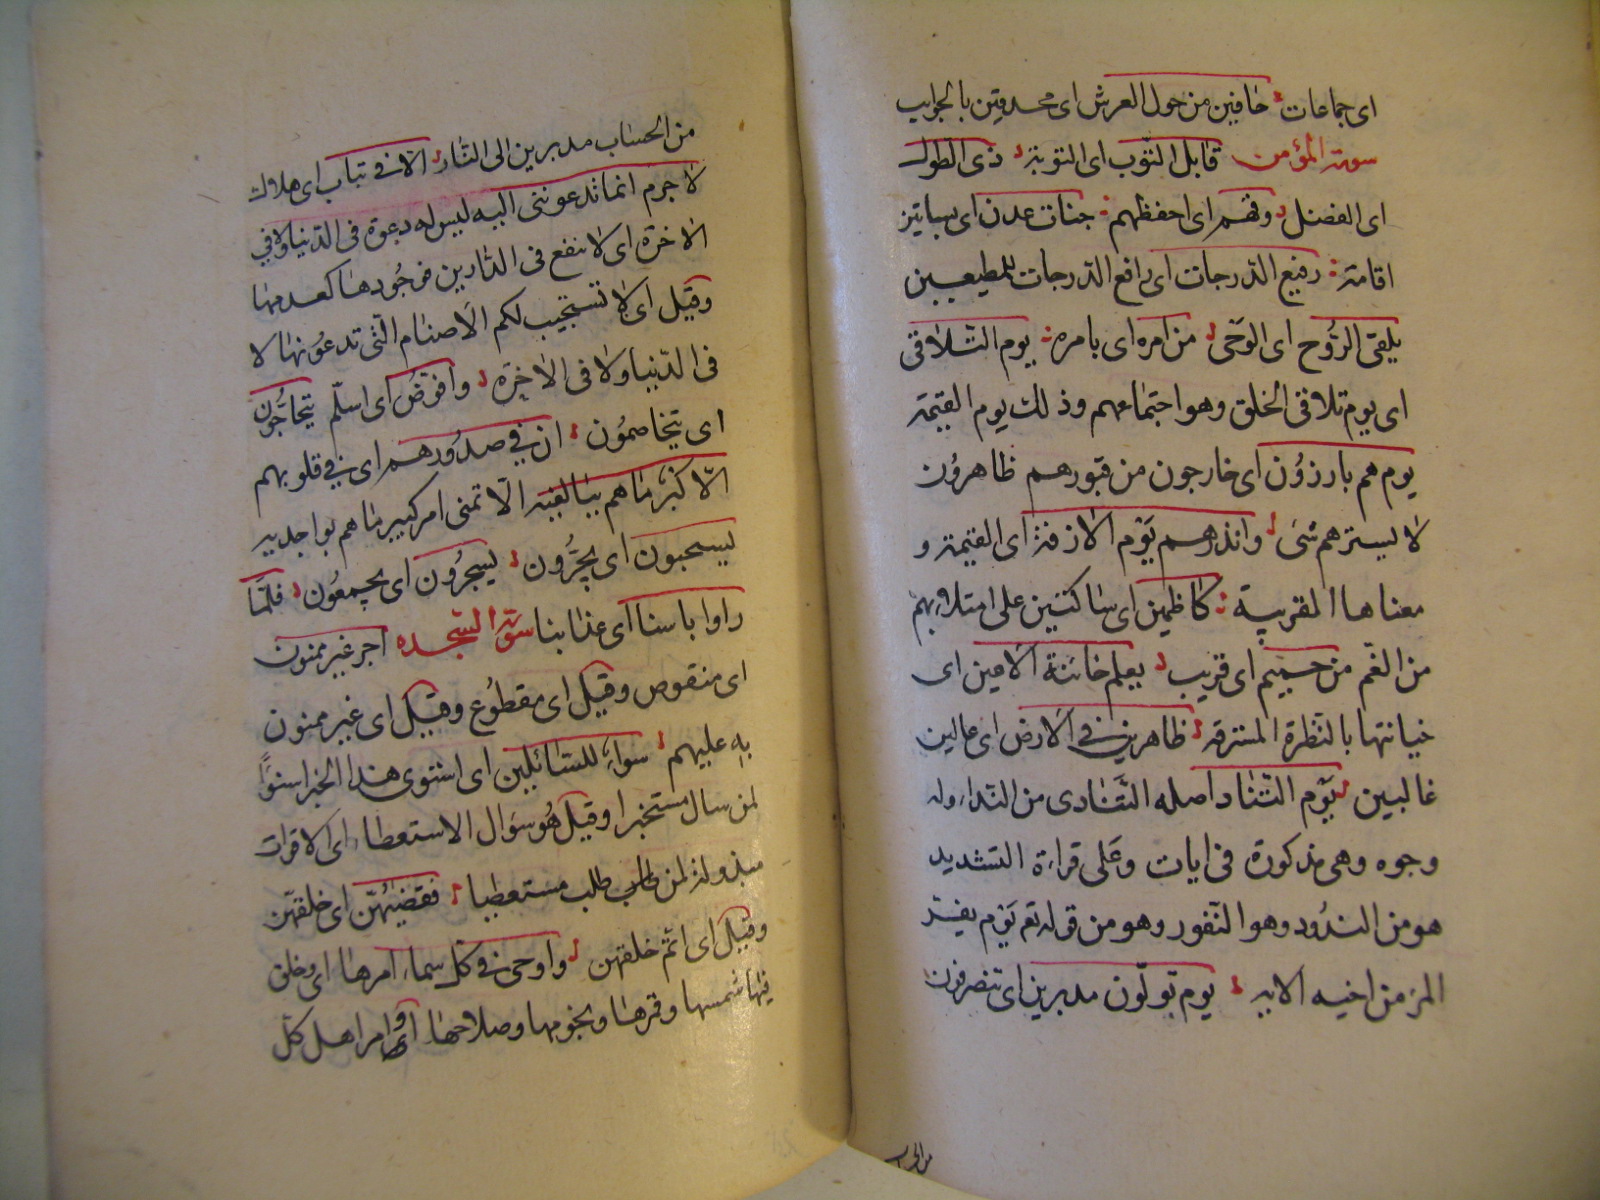 اى جماعات حافين من حول العرش اى محدقين بالجوانب
سورة المؤمن قابل التوب اى التوبة ذى الطول
اى الفضل وقهم اى احفظهم جنات عدن اى بساتين
اقامة رفيع الدرجات اى رافع الدرجات للمطيعين
يلقى الرُّوح اى الوَحى من امره اى بامره يوم التلاقى
اى يوم تلاقى الخلق وهو اجتماعهم وذلك يوم القيمة
يوم هم بارزوُن اى خارجون من قبورهم ظاهروُن
لا يسترهم شى وانذرهم يَوم الازفة اى القيمة و
معناها المقربة كاظمين اى ساكتين على امتلاء بهم
من الغم من حميم اى قريب يعلم خائنة الاعين اى
خيانتها بالنظرة المسترقة ظاهرين فى الارض اى عالين
غالبين يَوم التناد اصله التنادى من النداء وله
وجوه وهى مذكورة فى ايات وعلى قراءة التشديد
هو من الندُود وهو النفور وهو من قوله تع يَوم يفر
المرء من اخيه الاية يوم تولّون مدبرين اى تنصرفون
من الحساب
من الحساب مدبرين الى النار الا فى تباب اى هلاك
لا جرم انما تدعوننى اليه ليس له دعوة فى الدنيا ولا فى
الاخرة اى لا ينفع فى الدارين فوجُودها كعدمها
وقيل اى لا تستجيب لكم الاصنام الّتى تدعوُنها لا
فى الدّنيا ولا فى الاخرة وافوّضُ اى اسلّم يتحاجُّون
اى يتخاصمُون ان فى صدُورهم اى فى قلوبهم
الّا كبْر ما هم ببالغيه الّا تمنى امر كبير ما هم بواجديه
يسحبون اى يجَرُّون يسجرُون اى يجمعُون فلمّا
راوا باسنا اى عذابنا سورة السجده اجر غير ممنون
اى منقوص وقيل اى مقطوُع وقيل اى غير ممنون
به عليهم سواء للسّائلين اى استوى هذا الخبر استواً
لمن سال مستخبرا وقيل هُو سؤال الاستعطا اى الاقوات
مبذولة لمن طلب مستعطيا فقضيٰهُنّ اى خلقهنّ
وقيل اى اتم خلقهن واوحى فى كلّ سماء امرها اى وخلق
فيها شمسها وقمرها ونجومها وصلاحها او امر اهل كلّ